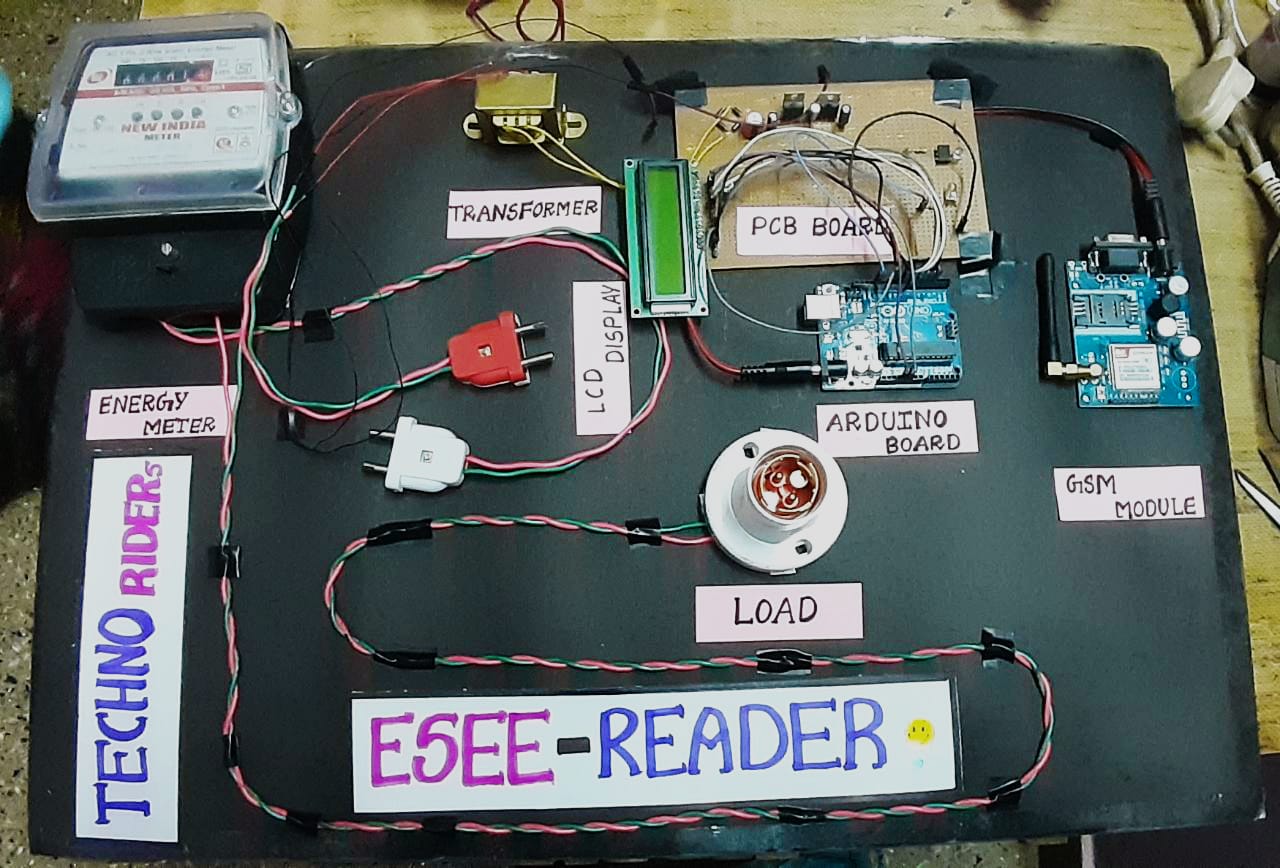 NEW INDIA
METER
TRANSFORMER
PCB BOARD
LCD
DISPLAY
ENERGY
METER
ARDUINO
BOARD
GSM
MODULE
LOAD
TECHNO RIDERs
ESEE-READER